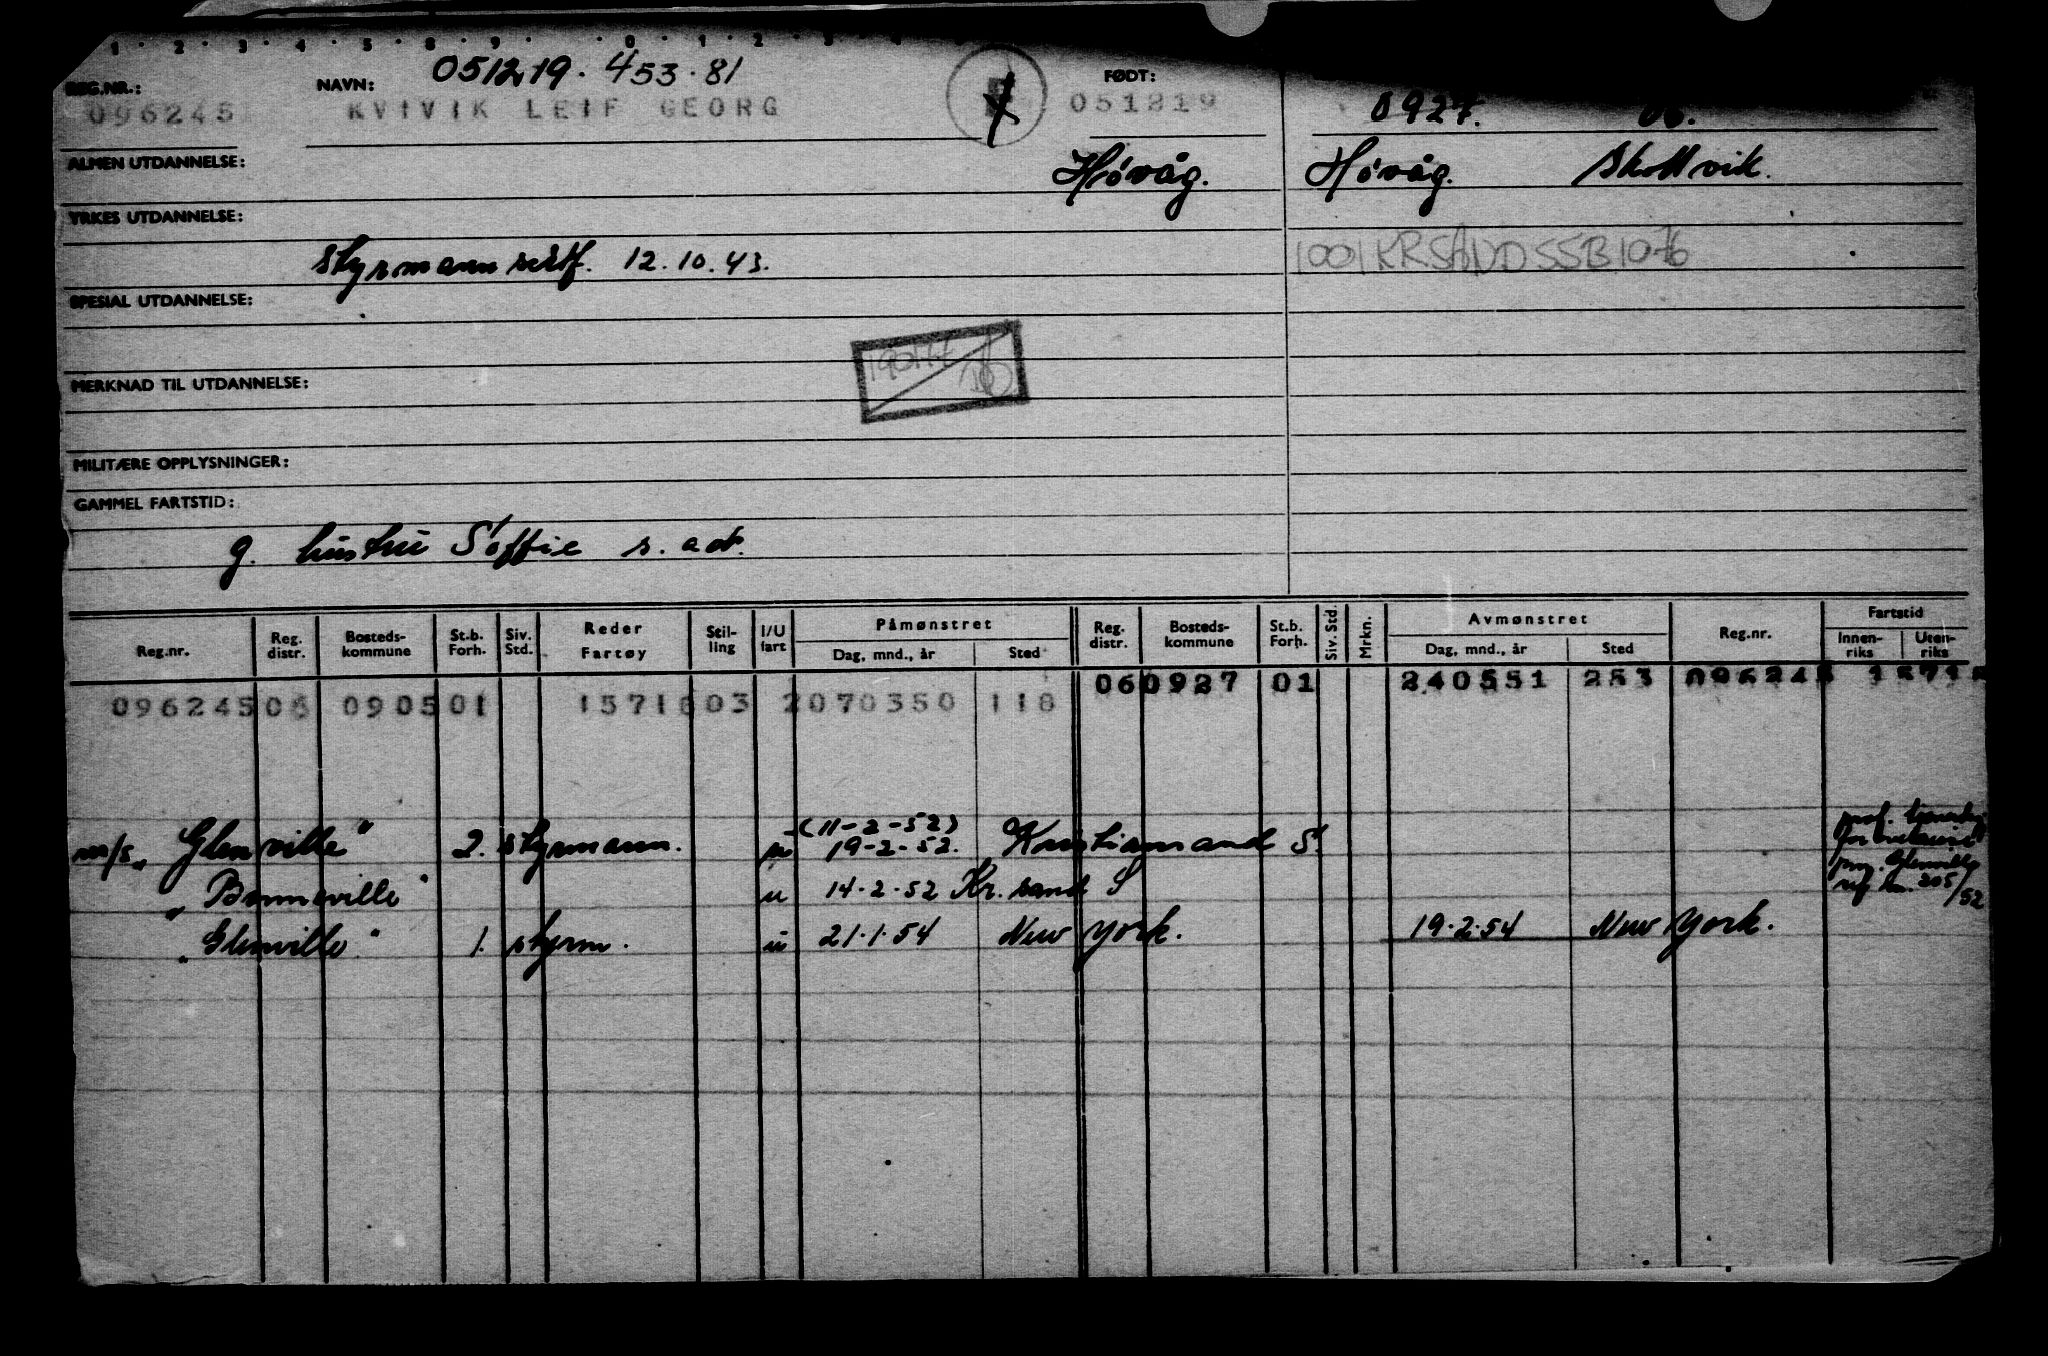 1 · 2 · 3 · 4 · 5 · 8 · 9 · · 0 · 1 · 2 · 3 · 4
051219 · 453 · 81
REG.NR.: NAVN: FØDT:
096245 KVIVIK LEIF GEORG 051219 0927. 06.
ALMEN UTDANNELSE: Høvåg. Høvåg. Skottvik.
YRKES UTDANNELSE:
styrmannsertf. 12.10.43. 1001 KRSAND SSB 1076
SPESIAL UTDANNELSE:
MERKNAD TIL UTDANNELSE:
MILITÆRE OPPLYSNINGER:
GAMMEL FARTSTID:
g. hustru Soffie s. adr.
Reg.nr. Reg. distr. Bosteds-kommune St.b. Forh. Siv. Std. Reder Fartøy Stil-ling I/U fart Påmønstret Dag, mnd., år Sted Reg. distr. Bosteds-kommune St.b. Forh. Siv. Std. Mrkn. Avmønstret Dag, mnd., år Sted Reg.nr. Fartstid Innen-riks Uten-riks
060927 01 240551 253 096245 1571
096245 06 0905 01 1571603 2070350 118
(11-2-52)
m/s "Glenville" 2. styrmann. u 19-2-52. Kristiansand S.
" Bonneville " u 14·2·52 Kr. sand S
" Glenville " 1. styrm. u 21·1·54 New York. 19·2·54 New York.
205/52